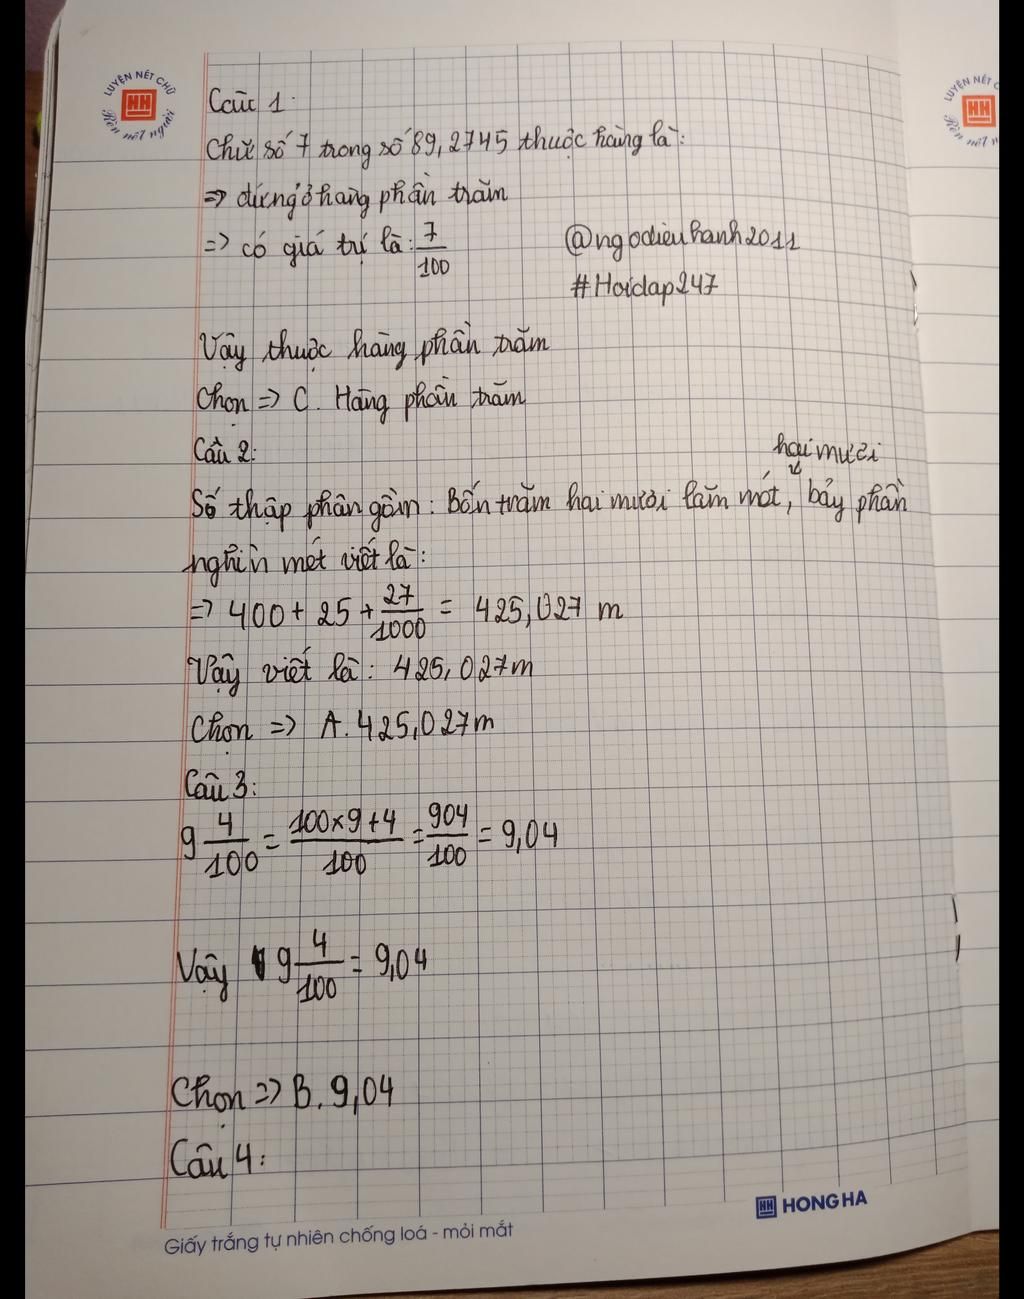 LUYỆN NÉT CHỮ
HH
Rèn nết người
LUYỆN NÉT C
HH
Câu 1:
Chữ số 7 trong số 89,2745 thuộc hàng là:
=> đứng ở hàng phần trăm
=> có giá trị là: 7/100
@ngodieuhanh2011
#Hoidap247
Vậy thuộc hàng phần trăm
Chọn => C. Hàng phần trăm
Câu 2:
hai mươi
Số thập phân gồm: Bốn trăm hai mươi lăm mét, bảy phần
nghìn mét viết là:
=> 400 + 25 + 27/1000 = 425,027 m
Vậy viết là: 425,027m
Chọn => A. 425,027m
Câu 3:
9 4/100 = 100×9+4/100 = 904/100 = 9,04
Vậy 9 4/100 = 9,04
Chọn => B. 9,04
Câu 4:
HH HONG HA
Giấy trắng tự nhiên chống loá - mỏi mắt